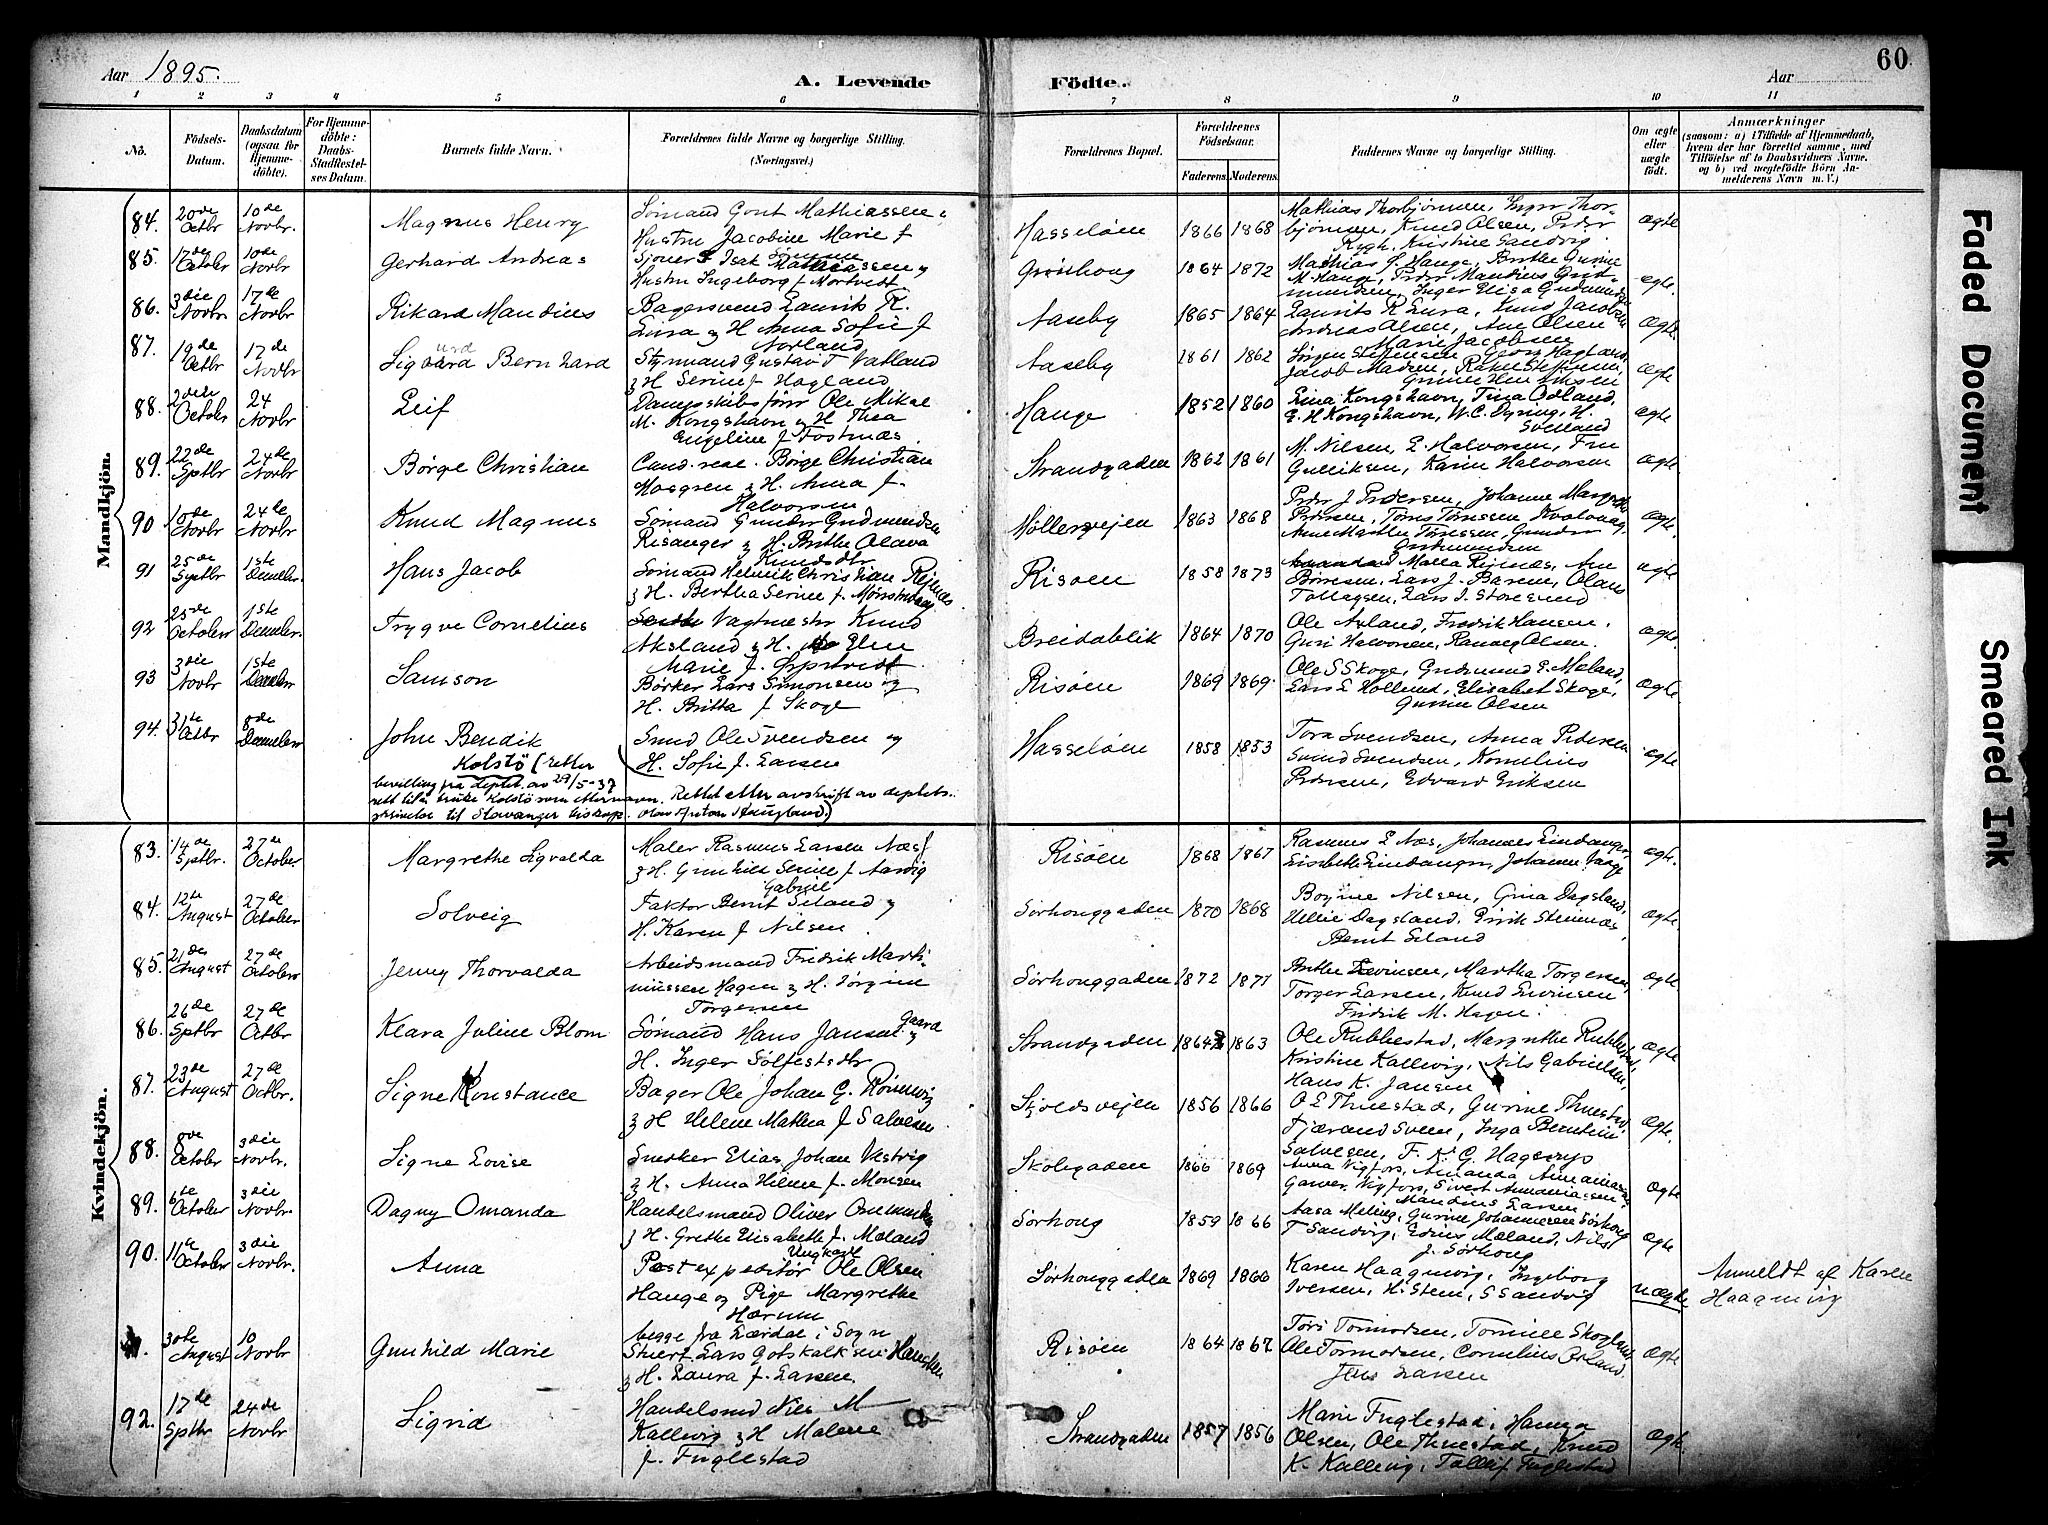 60
Aar 1895.
A. Levende
Födte.
Aar
1 2 3 4 5 6 7 8 9 10 11
No.
Födsels-
Datum.
Daabsdatum
(ogsaa for
Hjemme-
döbte).
For Hjemme-
döbte:
Daabs-
Stadfæstel-
ses Datum.
Barnets fulde Navn.
Forældrenes fulde Navne og borgerlige Stilling.
(Næringsvei.)
Forældrenes Bopæl.
Forældrenes
Födselsaar.
Faderens. Moderens.
Faddernes Navne og borgerlige Stilling.
Om ægte
eller
uægte
födt.
Anmærkninger
(saasom: a) i Tilfælde af Hjemmedaab,
hvem der har forrettet samme, med
Tilföielse af to Daabsvidners Navne.
og b) ved uægtefödte Börn An-
melderens Navn m. V.)
Mandkjön.
84. 20de Octbr 10de Novbr. Magnus Henry
Sømand Gont Mathiassen
Hustru Jacobine Marie f
Hasseløen 1866 1868
Mathias Thorbjørnsen, Inger Thor-
bjørnsen, Knud Olsen, Peder
Rygh, Kristine Sandvig.
ægte
85. 17de October 10de Novbr Gerhard Andreas
Isak Mathiassen og
Hustru Ingeborg f Mortvedt.
Grønhoug 1864 1872
ægte.
86. 3die Novbr 17de Novbr Rikard Mandius
Bagersvend Laurik R.
Eura & H Anna Sofie f
Norland
Aaseby 1865 1864
Laurits R Eura, Knud Jacobsen
Andreas Olsen, Ane Olsen
Marie Jacobsen
ægte.
87. 19de Octbr 17de Novbr Sigvard urd Bernhard
Styrmand Gustav T Vatland
& H Serine f Hogland
Aaseby 1861 1862
Jacob Madsen,
ægte
88. 20die October 24 Novbr Leif
Dampskibsfører Ole Mikal
M. Kongshavn & H Thea
Engeline f Fostnæs.
Hauge 1852 1860
Lina Kongshavn, Tina Odland,
E. H Kongshavn, W. C. Dyring, H.
Svelland
ægte
89. 22de Sptbr 24de Novbr Børge Christian
Cand. real. Børge Christian
Mosgren & H. Anna f.
Halvorsen
Strandgaden 1862 1861
M. Nilsen, E. Halvorsen, Fru
Gulliksen, Karen Halvorsen
ægte
90 10de Novbr 24de Novbr Knud Magnus
Sømand Gunder Gudmundsen
Risanger & H. Brithe Olava
Knudsdtr
Møllervejen 1863 1868
Peder J Pedersen, Johanne Margrethe
Anne Marthe Tønessen, Gunder
Gudmundsen
ægte.
91 25de Sptbr 1ste December. Hans Jacob
Sømand Henrik Christian Rejnæs
& H. Bertha Serine f. Monstrevaag
Risøen 1858 1873
Malla Rejnæs, Ane
Børresen, Lars J. Barsen, Olaus
Tollagsen, Lars J. Storesund
ægte
92 25de October 1ste December. Trygve Cornelius
Vagtmester Knud
Aksland & H. Eline
Marie f.
Breidablik 1864 1870
Ole Axland, Fredrik Hansen,
Guri Halvorsen, Ranveg Olsen.
ægte
93 3die Novbr 1ste December Samson
Børker Lars Simonsen og
H. Britta f Skoge
Risøen 1869 1869.
Ole S Skoge, Gudmund E. Meland,
Lars L Hollund, Elisabet Skoge,
Gurine Olsen
ægte
94. 31te Octbr 8de December John Bendik
Kolstö (etter
bevilling fra deptet. av 29/5-37
rett til å bruke Kolstö som etternavn. Rettet etter avskrift av deptets
skrivelse til Stavanger biskop. Olav Anton Haugland)
Smed Ole Svendsen og
H. Sofie f. Larsen
Hasseløen 1858 1853
Tora Svendsen, Anna Pedersen
Svend Svendsen, Kornelius
Pedersen, Edvard Eriksen
ægte
Kvindekjön.
83. 14de Sptbr. 27de October Margrethe Sigvalda
Maler Rasmus Larsen Næs
& H. Gunhild Serine f Aarvig
Risøen 1868 1867
Rasmus L Næs, Johannes Lindanger,
Lisabeth Lindanger, Johanne Vaage
ægte.
84. 12te August 27de October Solveig
Gabriel
Faktor Bernt Seland &
H. Karen f Nilsen.
Sørhouggaden 1870 1868
Boyine Nilsen, Gina Dagsland,
Hellie Dagsland, Erik Stennæs,
Bernt Seland
ægte
85. 21des August 27de October Jenny Thorvalda
Arbeidsmand Fredrik Marti-
niussen Hagen & H. Jørgine
Torgersen
Sørhouggaden 1872 1871
Brithe Levinsen, Martha Torgersen,
Torger Larsen, Knud Levinsen
Fredrik M. Hagen.
ægte.
86. 26de Sptbr 27de Octbr Klara Juline Blom
Sømand Hans Jansen Gaard &
H. Inger Sølfestsdtr
Strandgaden 1864 1863
Ole Rubbestad, Margrethe Rubbestad,
Kristine Kallevig, Nils Gabrielsen,
Hans K. Jansen
ægte
87. 23de August 27de Octbr. Signe Konstance
Bager Ole Johan G. Røvenvig
& H Helene Mathea f Salvesen
Skjoldsvejen 1856 1866
O E Thuestad, Gurine Thuestad,
Fjærand Sveen, Inga Berntine
Salvesen, F. K. G. Hagerup
ægte.
88. 8de October 3die Novbr. Signe Lovise
Snedker Elias Johan Vestvig
& H. Anna Helene f. Monsen
Skolegaden 1866 1869
Anna Vigfors, Amanda Annaniassen,
Vigfors, Sivert Annaniassen
Mandius Larsen
ægte
89. 6te October 3die Novbr. Dagny Omanda
Handelsmand Oliver
& H. Grethe Elisabeth f. Meland
Sørhoug 1859 1866
Aasa Meling, Gurine Johannesen Sørhoug
T Sandvig, Edvin Meland, Nils
J. Sørhoug
ægte
90. 11te October 3die Novbr. Anna
Ungkarl
Postexpeditør Ole Olsen
Hauge og Pige Margrethe
Hærum
begge fra Lærdal i Sogn
Sørhouggaden 1869 1866
Karen Haagenvig, Ingeborg
Iversen, H. Steen, S Sandvig
uægte
Anmeldt af Karen
Haagenvig
91. 30te August 10 Novbr Gunhild Marie
Lars Gotskalksen Hansken
& H. Laura f. Larsen.
Risøen 1864 1867
Tørs Tormodsen, Tomine Skogland
Ole Tormodsen, Cornelius Ørland,
Jens Larsen
ægte
92. 17de Sptbr 24de Novbr Sigrid
Handelsmd Nils M
Kallevig & H Malene
f. Fuglestad
Strandgaden 1857 1856
Marie Fuglestad, Hanna
Olsen, Ole Thuestad, Knud
K. Kallevig, Tollef Fuglestad
ægte
Faded Document
Smeared Ink